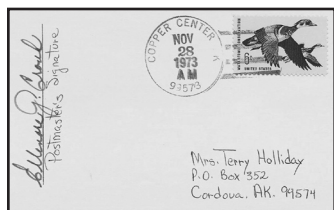 Postmaster's signature
COPPER CENTER
NOV
28
1973
AM
99573
6¢
UNITED STATES
Mrs. Terry Holliday
P.O. Box 352
Cordova, AK. 99574